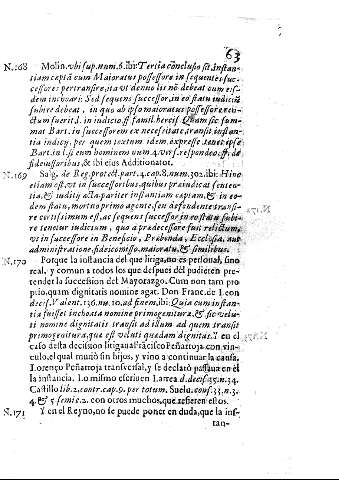 63
N.168 Molin. vbi sup. num. 6. ibi: Tertia conclusio sit, instan-
tiam cæptã cum Maioratus possessore in sequentes suc-
cessores pertransire, ita vt denuo lis nõ debeat cum eis-
dem invocari: Sed sequens successor, in eo statu iudiciũ
subire debeat, in quo ab ipso maioratus possessore reli-
ctum fuerit l. in iudicio ff. famil. hercisc. Quam sic sum-
mat Bart. in successorem ex necesitate, transit instan-
tia iudicij, per quem textum idem expresse tenet ipse
Bart. in l. si eum hominem num. 4. vers. respondeo, ff. de
fideiussoribus, & ibi eius Additionator.
N.169 Salg. de Reg. protect. part. 4. cap. 8. num. 302. ibi: Hinc
etiam est, vt in successoribus, quibus præiudicat senten-
tia, & iuditij acta, pariter instantiam cæptam, & in eo-
dem statu, mortuo primo agente, seu defendente transi-
re certissimum est, ac sequens successor in eo statu subi-
re tenetur iudicium, quo a prædecessore fuit relictum,
vt in successore in Beneficio, Præbenda, Ecclesia, aut
administratione fideicomisso, maioratu, & similibus.
N.170 Porque la instancia del que litiga, no es personal, sino
real, y comun a todos los que despues dèl pudieren pre-
tender la succession del Mayorazgo. Cum non tam pro
prio, quam dignitatis nomine agat. Don Franc. de Leon
decis. Valent. 136. nu. 10. ad finem, ibi: Quia cum instan-
tia fuisset inchoata nomine primogenitura, & sic velu-
ti nomine dignitatis transit ad illum ad quem transit
primogenitura, quæ est veluti quædam dignitas. Y en el
caso desta decision litigaua Frãcisco Peñarroja con vin-
culo, el qual muriò sin hijos, y vino a continuar la causa,
Lorenço Peñarroja transversal, y se declarò passaua en èl
la instancia. Lo mismo escriuen Larrea d. decis. 35. n. 34.
Castillo lib. 2. contr. cap. 9. per totum. Suelu. cons. 33. n. 3.
4. & 5. semic. 2. con otros muchos, que refieren estos.
N.171 Y en el Reyno, no se puede poner en duda, que la ins-
tan-